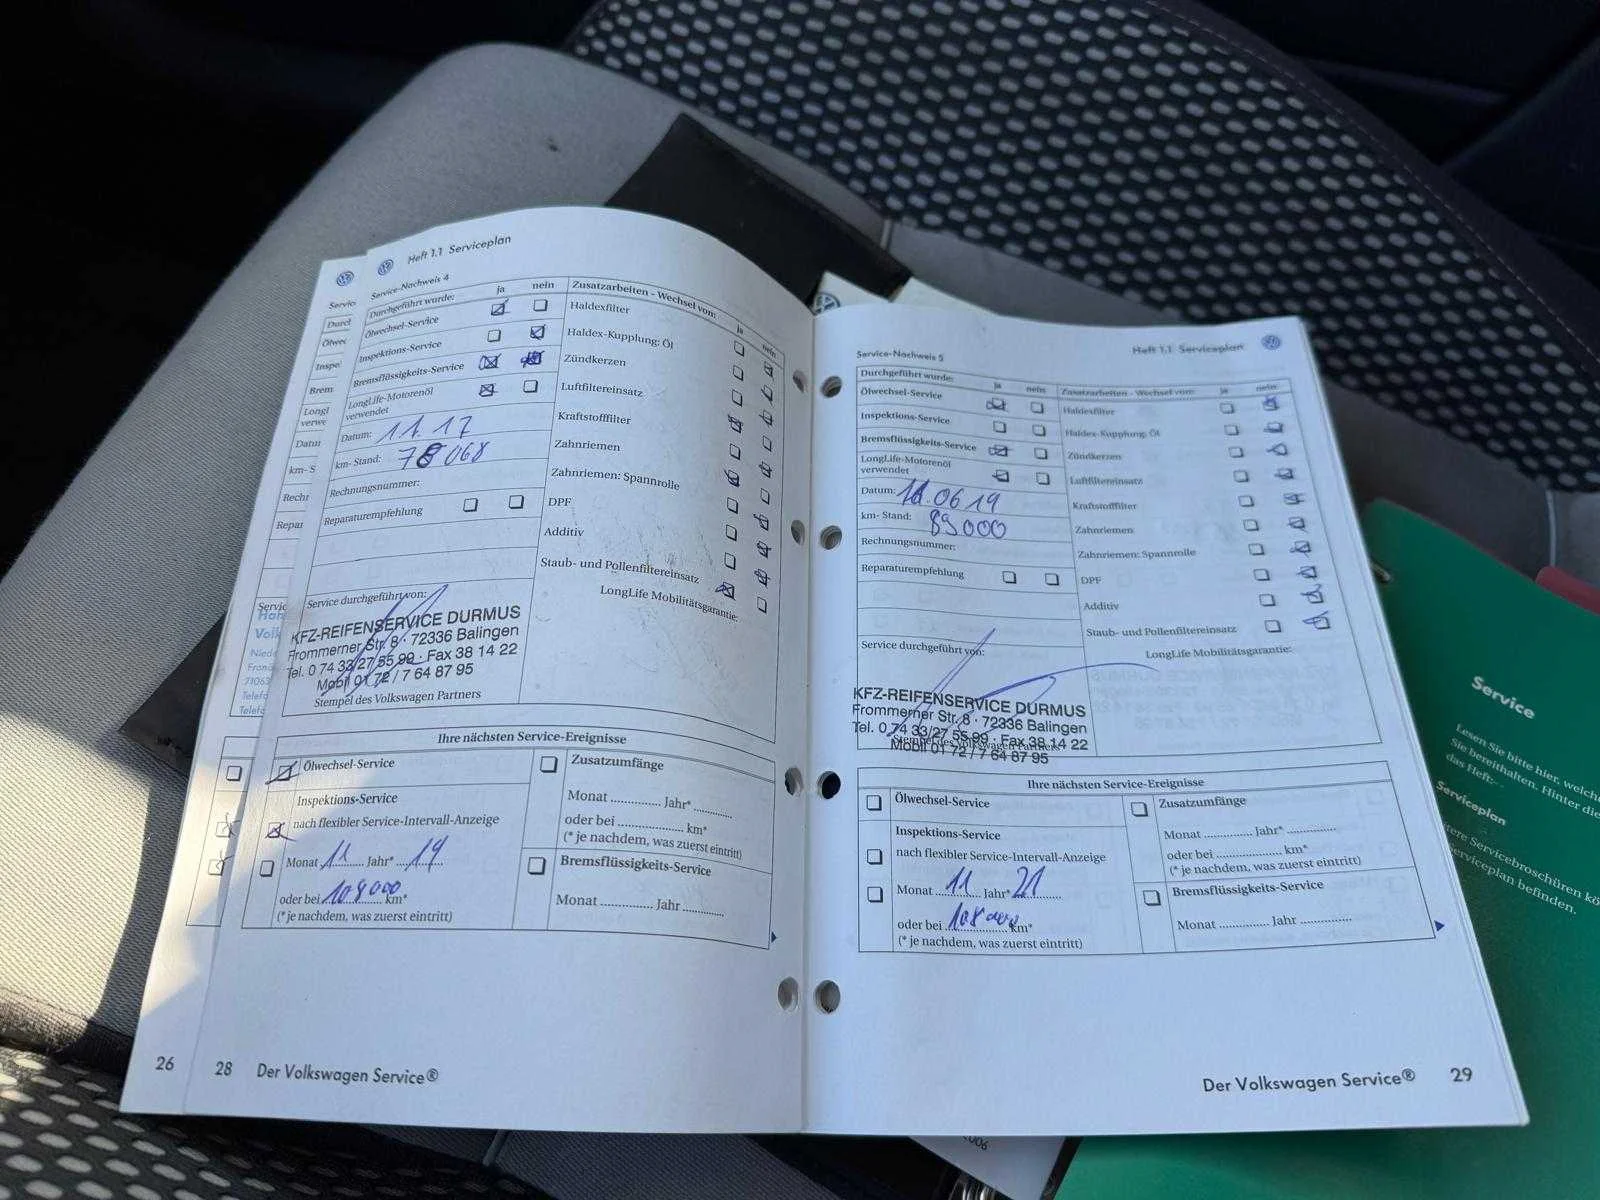 Heft 1.1 Serviceplan
Service-Nachweis 4
Durchgeführt wurde: ja nein
Ölwechsel-Service
Inspektions-Service
Bremsflüssigkeits-Service
LongLife-Motorenöl
verwendet
Datum: 11.17
km- Stand: 78 068
Rechnungsnummer:
Reparaturempfehlung
Zusatzarbeiten - Wechsel von: ja nein
Haldexfilter
Haldex-Kupplung: Öl
Zündkerzen
Luftfiltereinsatz
Kraftstofffilter
Zahnriemen
Zahnriemen: Spannrolle
DPF
Additiv
Staub- und Pollenfiltereinsatz
LongLife Mobilitätsgarantie:
Service durchgeführt von:
KFZ-REIFENSERVICE DURMUS
Frommerner Str. 8 · 72336 Balingen
Tel. 0 74 33/27 55 99 · Fax 38 14 22
Mobil 01 72 / 7 64 87 95
Stempel des Volkswagen Partners
Ihre nächsten Service-Ereignisse
Ölwechsel-Service
Inspektions-Service
nach flexibler Service-Intervall-Anzeige
Monat 11 Jahr* 19
oder bei 108 000 km*
(* je nachdem, was zuerst eintritt)
Zusatzumfänge
Monat .............. Jahr* ..............
oder bei .................... km*
(* je nachdem, was zuerst eintritt)
Bremsflüssigkeits-Service
Monat .............. Jahr ..............
26
28 Der Volkswagen Service®
Service-Nachweis 5
Heft 1.1 Serviceplan
Durchgeführt wurde: ja nein
Ölwechsel-Service
Inspektions-Service
Bremsflüssigkeits-Service
LongLife-Motorenöl
verwendet
Datum: 11.06 19
km- Stand: 89000
Rechnungsnummer:
Reparaturempfehlung
Zusatzarbeiten - Wechsel von: ja nein
Haldexfilter
Haldex-Kupplung: Öl
Zündkerzen
Luftfiltereinsatz
Kraftstofffilter
Zahnriemen
Zahnriemen: Spannrolle
DPF
Additiv
Staub- und Pollenfiltereinsatz
LongLife Mobilitätsgarantie:
Service durchgeführt von:
KFZ-REIFENSERVICE DURMUS
Frommerner Str. 8 · 72336 Balingen
Tel. 0 74 33/27 55 99 · Fax 38 14 22
Mobil 01 72 / 7 64 87 95
Ihre nächsten Service-Ereignisse
Ölwechsel-Service
Inspektions-Service
nach flexibler Service-Intervall-Anzeige
Monat 11 Jahr* 21
oder bei 108 000 km*
(* je nachdem, was zuerst eintritt)
Zusatzumfänge
Monat .............. Jahr* ..............
oder bei .................... km*
(* je nachdem, was zuerst eintritt)
Bremsflüssigkeits-Service
Monat .............. Jahr ..............
Der Volkswagen Service® 29
Service
Lesen Sie bitte hier, welche
Sie bereithalten. Hinter die
das Heft:
Serviceplan
Servicebroschüren
befinden.